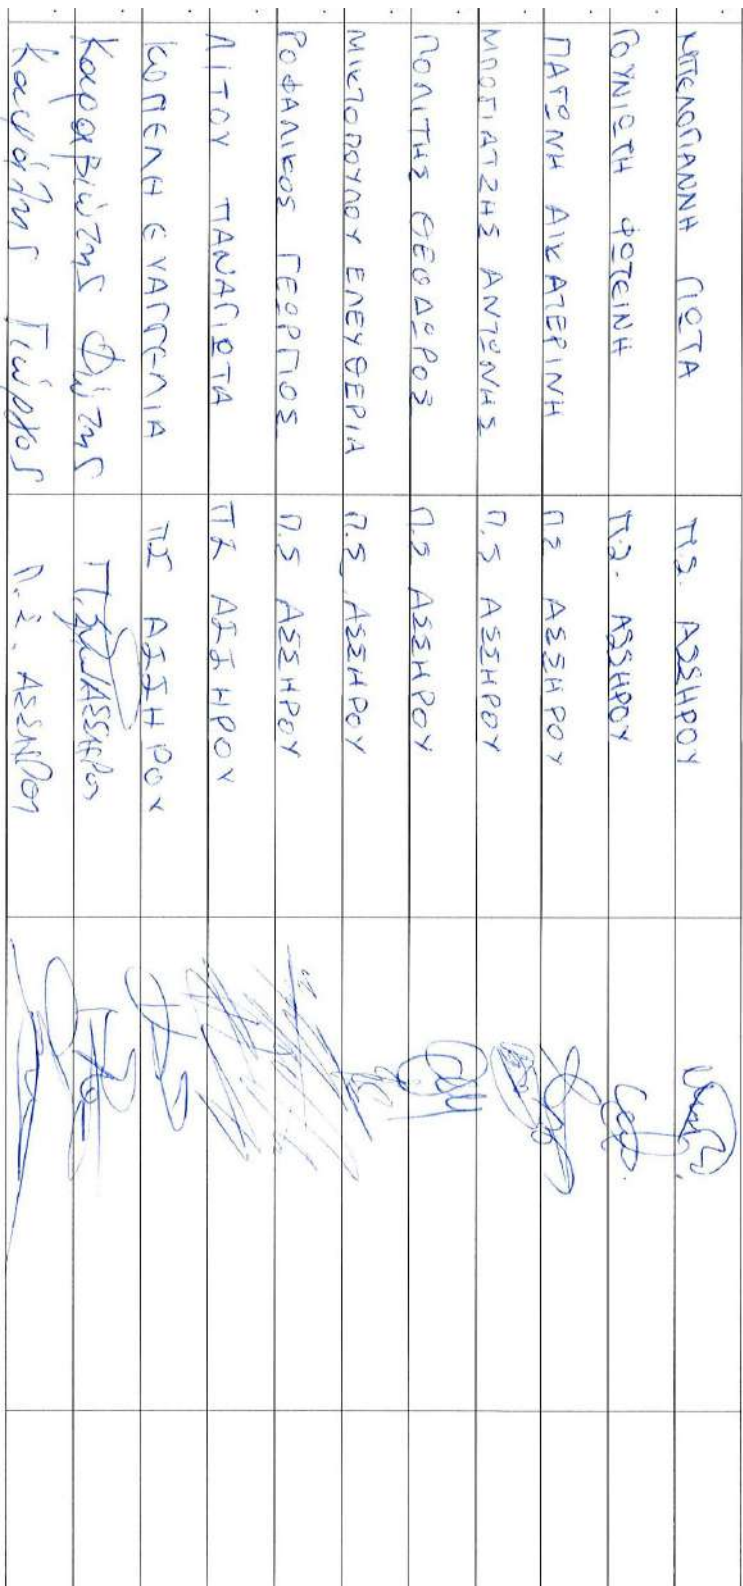 ΜΠΕΛΟΓΙΑΝΝΗ ΓΙΩΤΑ Π.Σ. ΑΣΣΗΡΟΥ
ΓΟΥΝΙΩΤΗ ΦΩΤΕΙΝΗ Π.Σ. ΑΣΣΗΡΟΥ
ΠΑΤΩΝΗ ΑΙΚΑΤΕΡΙΝΗ ΠΣ ΑΣΣΗΡΟΥ
ΜΠΟΓΙΑΤΖΗΣ ΑΝΤΩΝΗΣ Π.Σ ΑΣΣΗΡΟΥ
ΠΟΛΙΤΗΣ ΘΕΟΔΩΡΟΣ Π.Σ ΑΣΣΗΡΟΥ
ΜΙΚΤΟΠΟΥΛΟΥ ΕΛΕΥΘΕΡΙΑ Π.Σ ΑΣΣΗΡΟΥ
ΡΟΦΑΛΙΚΟΣ ΓΕΩΡΓΙΟΣ Π.Σ ΑΣΣΗΡΟΥ
ΛΙΤΟΥ ΠΑΝΑΓΙΩΤΑ ΠΣ ΑΣΣΗΡΟΥ
ΚΟΠΕΛΗ ΕΥΑΓΓΕΛΙΑ ΠΣ ΑΣΣΗΡΟΥ
Καραβιώτης Φώτης Π.Σ ΑΣΣΗΡΟΥ
Γιώργος Π.Σ. ΑΣΣΗΡΟΥ